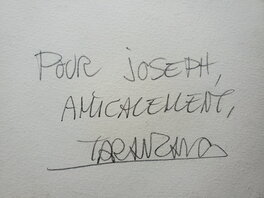 POUR JOSEPH,
AMICALEMENT,
TARANZANO